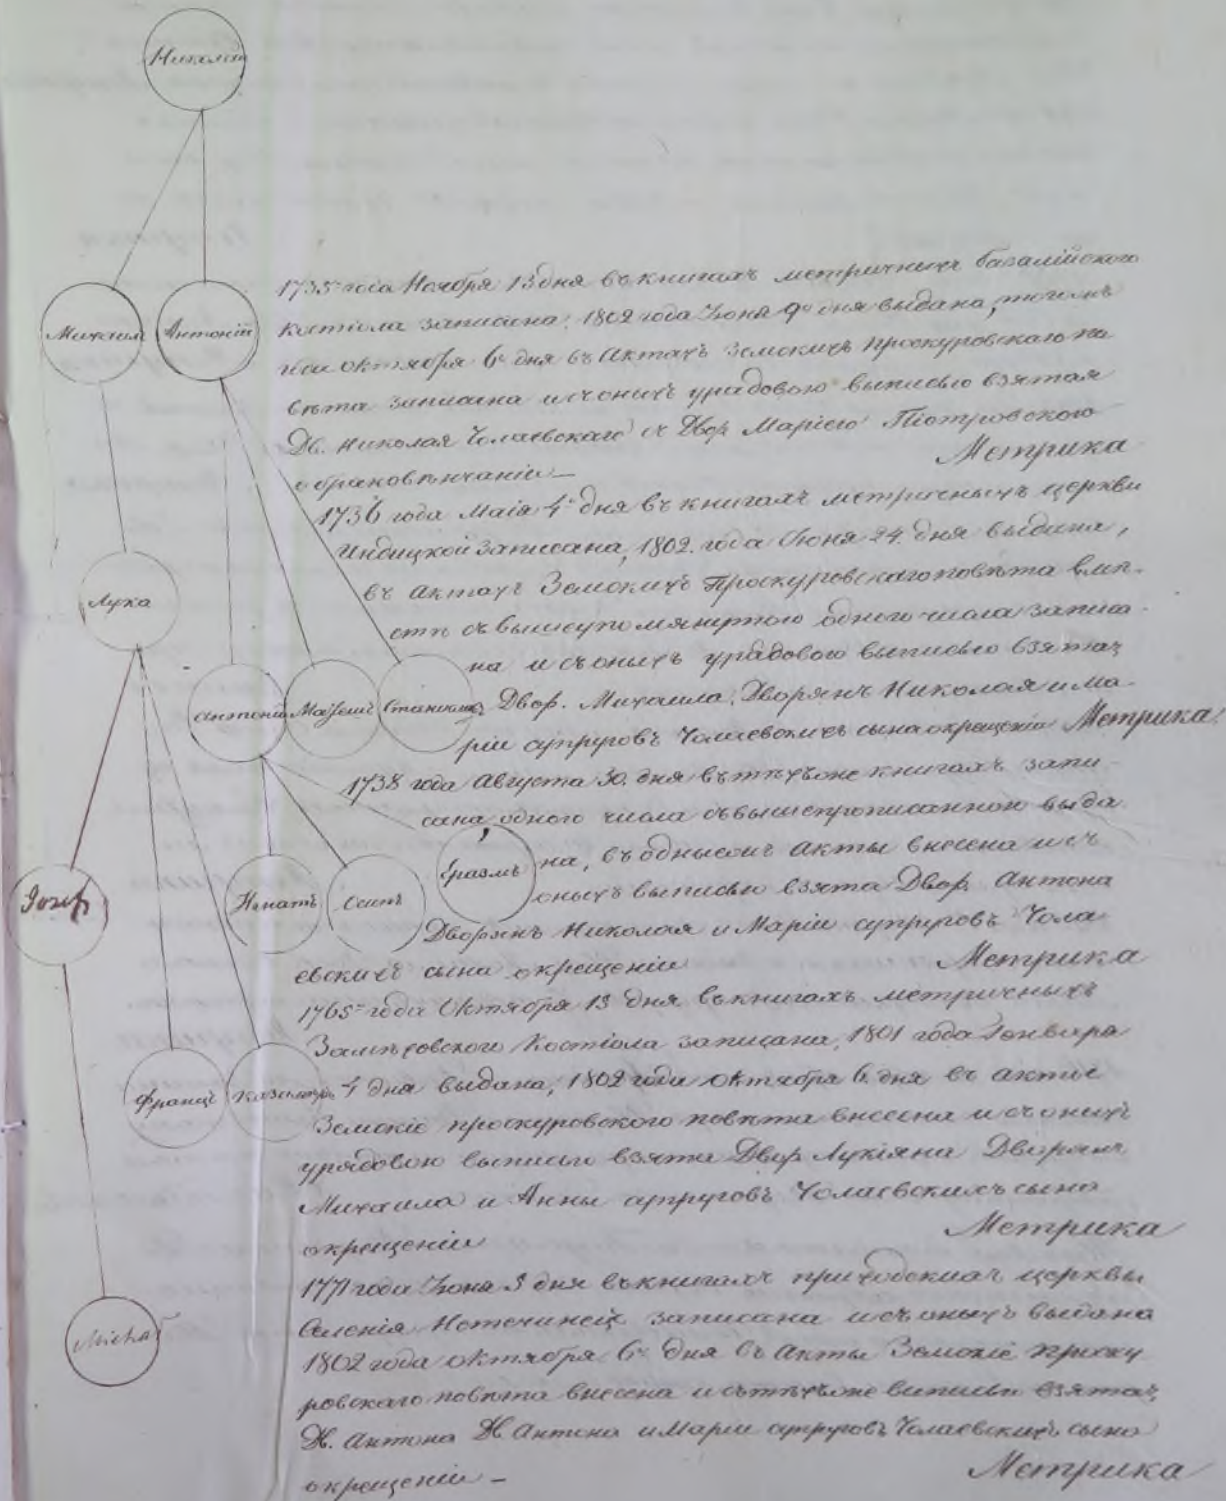 Николай
Михаил
Антоній
Лука
Антоній
Матеушъ
Станиславъ
Іозеф
Игнатъ
Осипъ
Еразмъ
Францъ
Казимиръ
Michał
1735 года Ноября 13 дня въ книгахъ метричныхъ базалійского
костіола записана, 1802 года Іюня 9 дня выдана, того жъ
года октября 6 дня въ Актахъ Земскихъ проскуровскаго по
вѣта записана и съ оныхъ урядовою выписью взятая
Дв. Николая Чолаевскаго съ Двор Маріею Піотровского
о браковѣнчаніи — Метрика
1736 года Маія 4 дня въ книгахъ метричныхъ церкви
записана, 1802 года Іюня 24 дня выдана,
въ актахъ Земскихъ Проскуровскаго повѣта вмѣ-
стѣ съ вышеупомянутою одного числа записа-
на и съ оныхъ урядовою выписью взятая
Двор. Михаила, Дворянъ Николая и Ма-
ріи супруговъ Чолаевскихъ сына окрещеніи Метрика
1738 года Августа 30 дня въ тѣхъ же книгахъ запи-
сана, одного числа съ вышепрописанною выда
на, въ акты внесена и съ
оныхъ выписью взята Двор. Антона
Дворянъ Николая и Маріи супруговъ Чола
евскихъ сына окрещеніи Метрика
1765 года Октября 13 дня въ книгахъ метричныхъ
Костіола записана, 1801 года Генваря
4 дня выдана, 1802 года октября 6 дня въ акты
Земскіе проскуровского повѣта внесена и съ оныхъ
урядовою выписью взята Двор Лукіяна Дворянъ
Михаила и Анны супруговъ Чолаевскихъ сына
окрещеніи Метрика
1771 года Іюня 3 дня въ книгахъ приходскихъ церквы
Селенія записана и съ оныхъ выдана
1802 года октября 6 дня въ Акты Земскіе проску
ровскаго повѣта внесена и съ тѣхъ же выписью взятая
Дв. Антона Дв Антона и Маріи супруговъ Чолаевскихъ сына
окрещеніи — Метрика